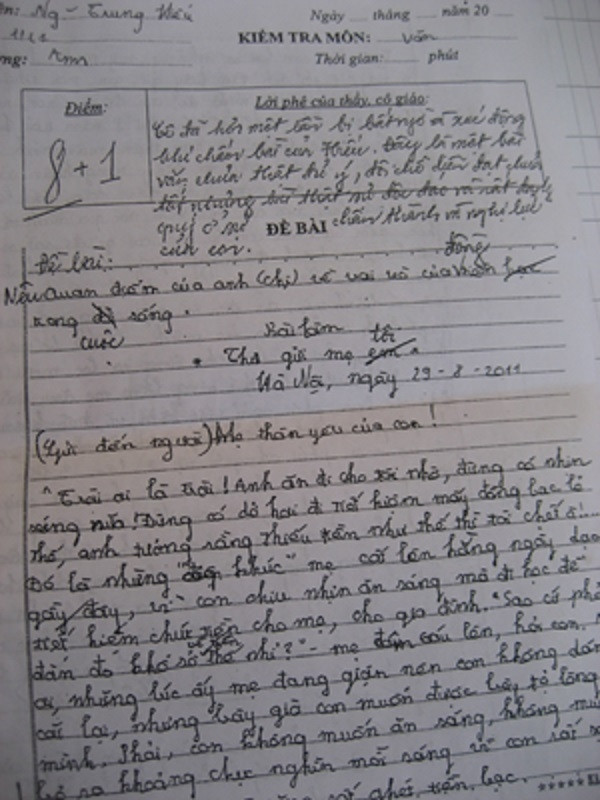 ên: Ng - Trung Hiếu Ngày tháng năm 20
11L1 KIỂM TRA MÔN: Văn
ng: Ams Thời gian: phút
Điểm: Lời phê của thầy, cô giáo:
8 + 1
Cô đã hơn một lần bị bất ngờ và xúc động
khi chấm bài của Hiếu. Đây là một bài
văn chưa thật hết ý, đôi chỗ dẫn dắt chưa
tốt nhưng
quý ở sự chân thành và nghị lực
của con.
ĐỀ BÀI
Đề bài:
đồng
Nêu quan điểm của anh (chị) về vai trò của
trong sống.
cuộc
Bài làm
tôi
Thư gửi mẹ em.
Hà Nội, ngày 29 - 8 - 2011
(Gửi đến người) Mẹ thân yêu của con!
"Trời ơi là trời! Anh ăn đi cho tôi nhờ, đừng có nhịn
sáng nữa! Đừng có dở hơi đi tiết kiệm mấy đồng bạc lẻ
thế, anh tưởng rằng thiếu tiền như thế thì tôi chết à!...
Đó là những khúc" mẹ cất lên hằng ngày dạo
gần đây, vì con chịu nhịn ăn sáng mà đi học để
tiết kiệm chút tiền cho mẹ, cho gia đình. "Sao cứ phải
đần độ khổ sở thế nhỉ?" - mẹ gầm lên, hỏi con.
ại, những lúc ấy mẹ đang giận nên con không dám
cãi lại, nhưng bây giờ con muốn được bày tỏ lòng
mình. Phải, con không muốn ăn sáng, không muốn
bỏ ra khoảng chục nghìn mỗi sáng vì con
ghét tiền bạc.